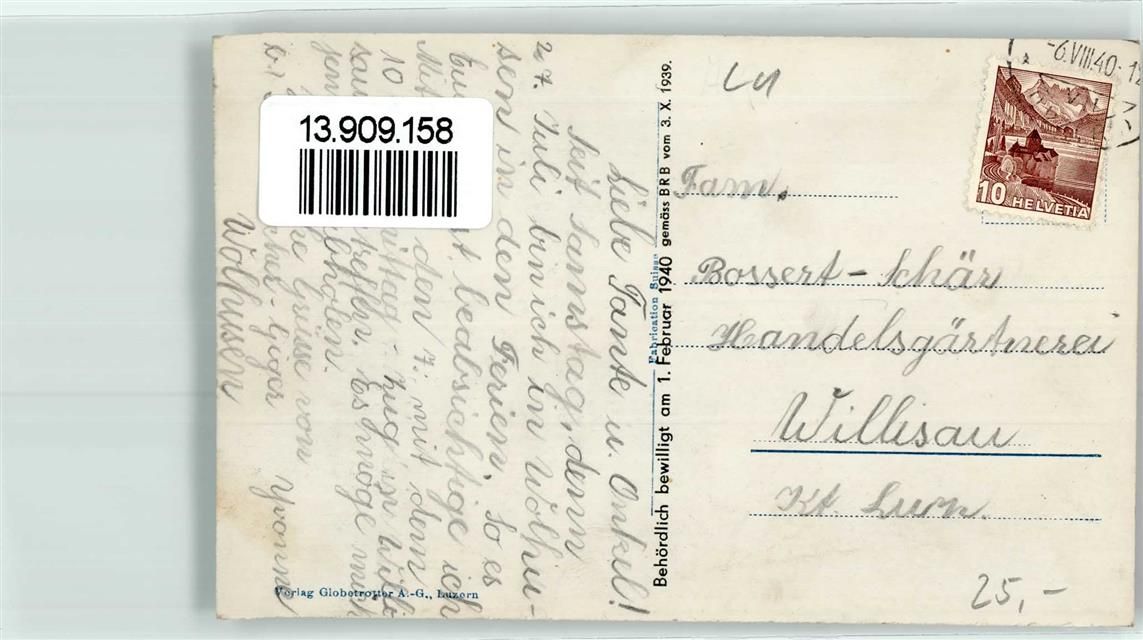 Liebe Tante u. Onkel!
Seit Samstag, denn
27. Juli bin ich in Wolhu-
sen in den Ferien. So es
ist, beabsichtige ich
Mit den 7., mit dem
10 - Zug in Willi
treffen. Es möge mich
abholen.
Grüsse von
Yvonne
Wolhusen
Verlag Globetrotter A.-G., Luzern
Behördlich bewilligt am 1. Februar 1940 gemäss BRB vom 3. X. 1939.
Fabrication Suisse
13.909.158
LU
-6.VIII.40-12
10 HELVETIA
Fam.
Bossert-Schär
Handelsgärtnerei
Willisau
Kt. Luzern.
25,-